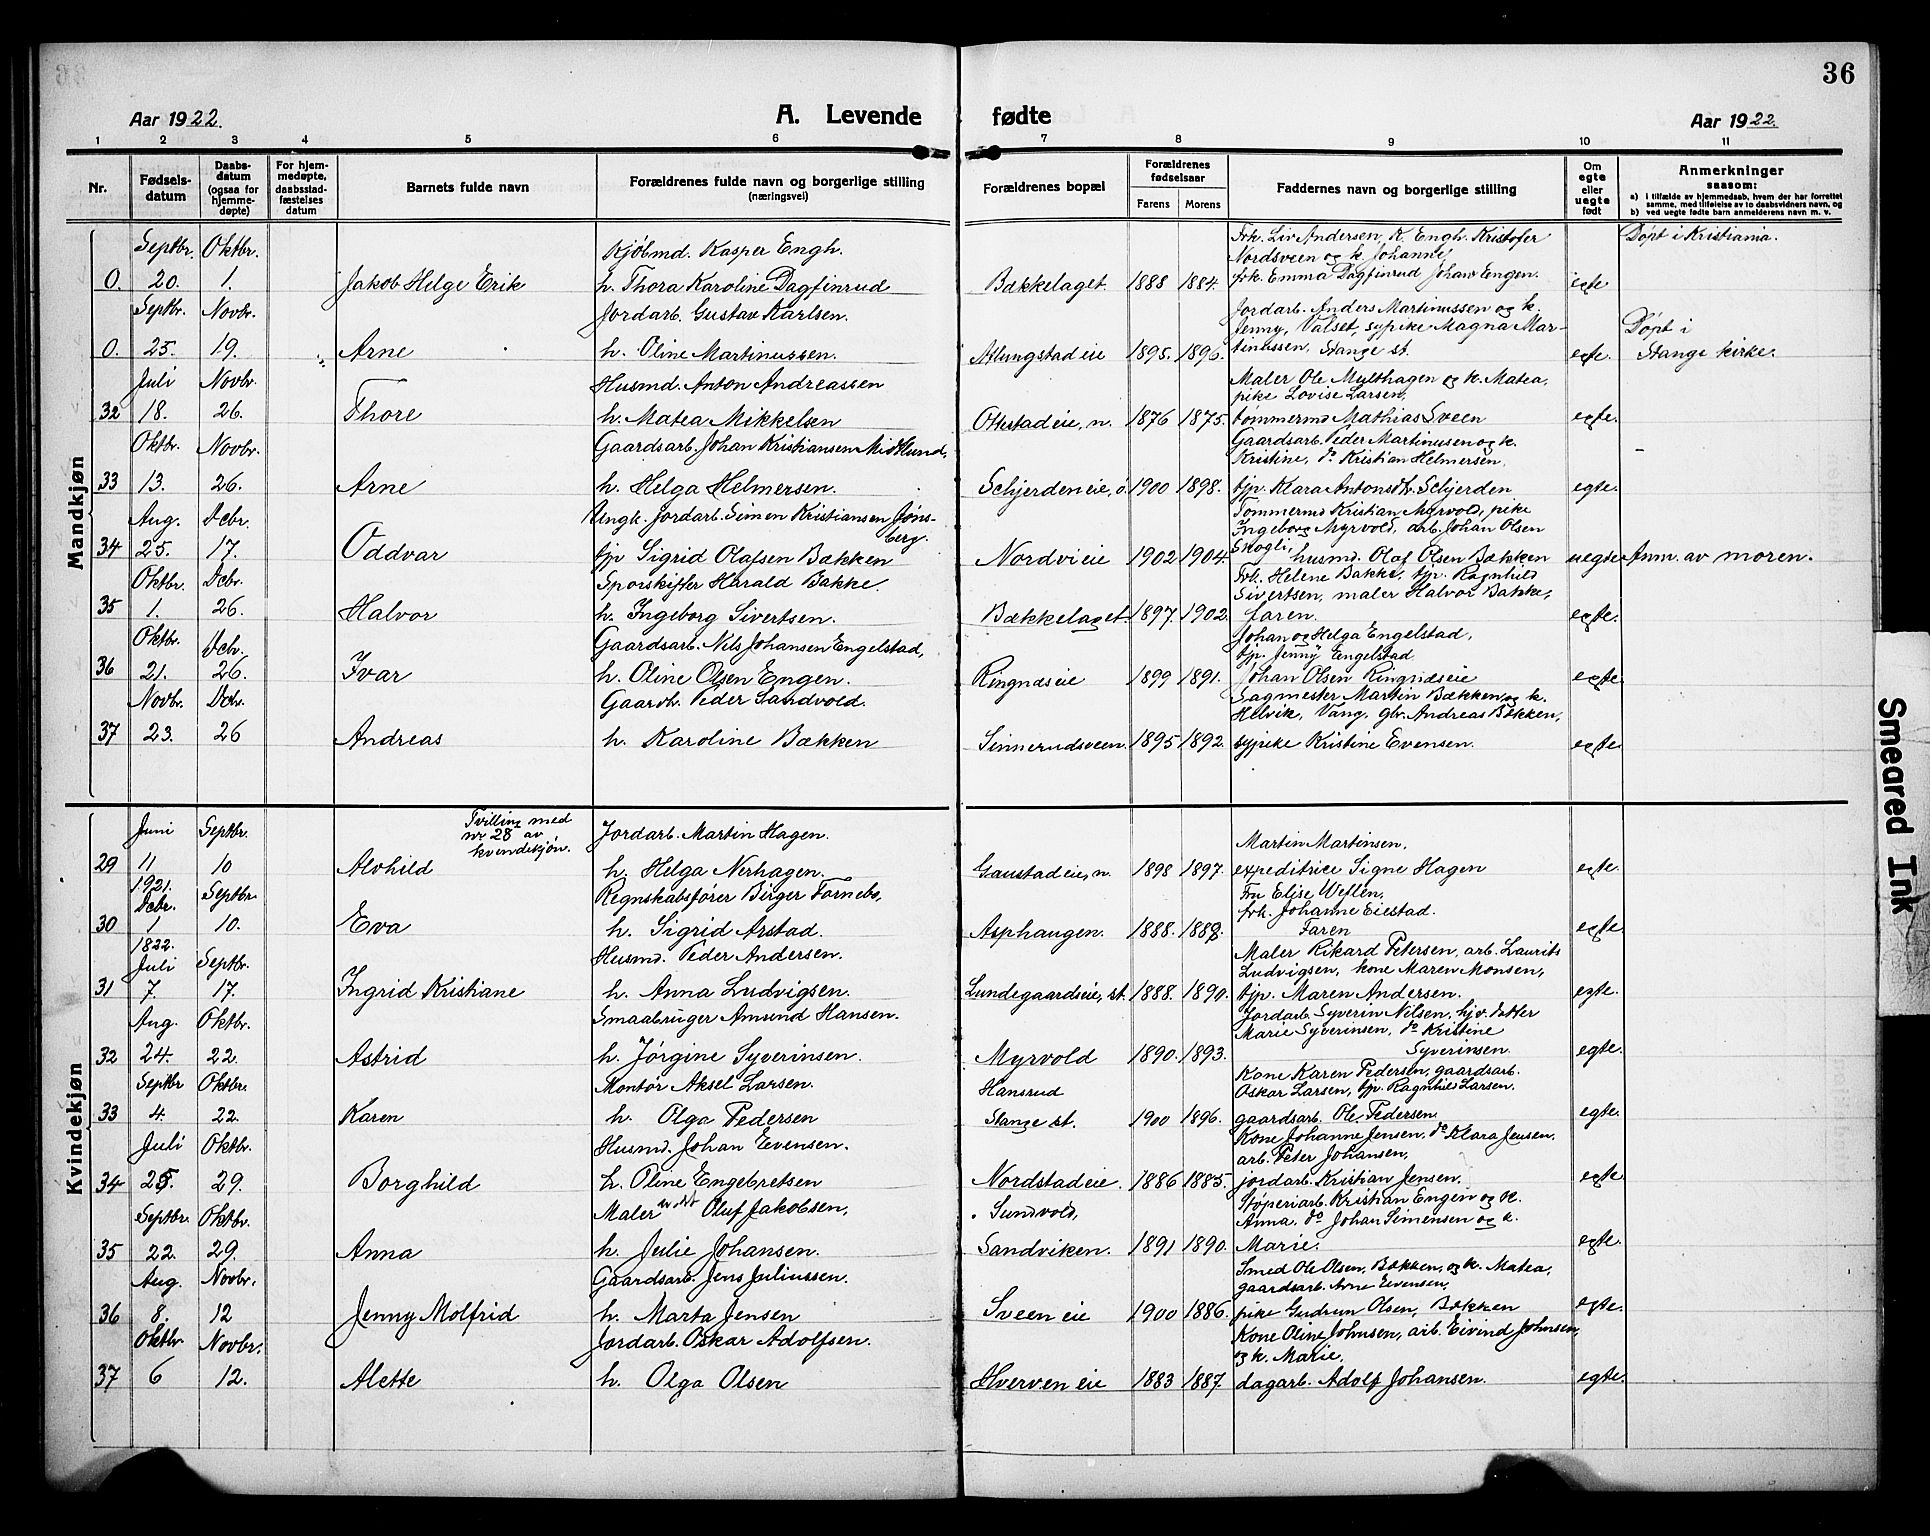 36
Aar 1922.
A. Levende fødte
Aar 1922.
1 2 3 4 5 6 7 8 9 10 11
Nr.
Fødsels-datum
Daabs-datum (ogsaa for hjemme-døpte)
For hjem-medøpte, daabsstad-fæstelses datum
Barnets fulde navn
Forældrenes fulde navn og borgerlige stilling
(næringsvei)
Forældrenes bopæl
Forældrenes fødselsaar
Farens Morens
Faddernes navn og borgerlige stilling
Om egte eller uegte født
Anmerkninger
saasom:
a) i tilfælde av hjemmedaab, hvem der har forrettet samme, med tilføielse av to daabsvidners navn, og
b) ved uegte fødte barn anmelderens navn m. v.
Mandkjøn
Septbr. Oktbr. Kjøbmd. Kasper Engh. Frk. Liv Andersen, K. Engh. Kristofer Døpt i Kristiania.
Nordsveen og k. Johanne,
0. 20. 1. Jakob Helge Erik h. Thora Karoline Dagfinrud Bækkelaget. 1888 1884. frk. Emma Dagfinrud Johan Engen. egte
Septbr. Novbr. Jordarb. Gustav Karlsen. Jordarb. Anders Martinussen og k.
Jenny, Valset, sypike Magna Mar- Døpt i
0. 25. 19. Arne h. Oline Martinussen. Atlungstadeie 1895. 1896. tinussen, Stange st. egte. Stange kirke.
Juli Novbr. Husmd. Anton Andreassen Maler Ole Mylthagen og k. Matea,
pike Lovise Larsen,
32 18. 26. Thore h. Matea Mikkelsen Ottestadeie, n. 1876 1875. tømmermd Mathias Sveen egte.
Oktbr. Novbr. Gaardsarb. Johan Kristiansen Midtlund, Gaardsarb. Peder Martinusen og k.
Kristine, do Kristian Helmersen,
33 13. 26. Arne h. Helga Helmersen. Schjerdeneie, ø. 1900 1898. tjp. Klara Antonsdtr. Schjerden egte.
Aug. Decbr. Ungk. Jordarb. Simen Kristiansen Jøns-berg. Tømmermd Kristian Myrvold, pike
Ingeborg Myrvold, arb. Johan Olsen
34 25. 17. Oddvar tjp Sigrid Olafsen Bækken Nordvieie 1902 1904. Skogli, husmd. Olaf Olsen Bækken uegte Anm. av moren.
Oktbr. Dcbr. Sporskifter Harald Bakke. Frk. Helene Bakke, tjp. Ragnhild
Sivertsen, maler Halvor Bakke,
35 1. 26. Halvor h. Ingeborg Sivertsen. Bækkelaget 1897. 1902. faren. egte.
Oktbr. Dcbr. Gaardsarb. Nils Johansen Engelstad, Johan og Helga Engelstad,
tjp. Jenny Engelstad
36 21. 26. Ivar h. Oline Olsen Engen. Ringnæseie 1899 1891. Johan Olsen Ringnæseie egte.
Novbr. Dcbr. Gaardbr. Peder Sandvold. Sagmester Martin Bækken og k.
Helvik, Vang. gbr. Andreas Bækken,
37 23. 26 Andreas h. Karoline Bækken Sinnerudsveen. 1895 1892. sypike Kristine Evensen. egte
Kvindekjøn
Juni Septbr. Tvilling med nr 28 av kvindekjøn. Jordarb. Martin Hagen. Martin Martinsen,
29 11 10 Alvhild h. Helga Nerhagen. Gaustadeie, n. 1898 1897. expeditrice Signe Hagen egte.
1921. Dcbr. Septbr. Regnskabsfører Birger Fornebo, Fru Elise Weflen,
frk. Johanne Eiestad.
30 1 10. Eva h. Sigrid Arstad. Asphaugen. 1888. Faren egte
1822. Juli Septbr. Husmd. Peder Andersen. Maler Rikard Petersen, arb. Laurits
Ludvigsen, kone Maren Monsen,
31 7. 17. Ingrid Kristiane h. Anna Ludvigsen. Lundegaardseie, st. 1888. 1890. tjp. Maren Andersen. egte.
Aug. Oktbr. Smaabruger Amund Hansen. Jordarb. Syverin Nilsen, hjv. datter
Marie Syverinsen, do Kristine
32 24. 22. Astrid h. Jørgine Syverinsen. Myrvold 1890. 1893. Syverinsen. egte.
Septbr Oktbr. Montør Aksel Larsen. Hansrud Kone Karen Pedersen, gaardsarb.
Oskar Larsen, tjp. Ragnhild Larsen,
33 4. 22. Karen h. Olga Pedersen Stange st. 1900 1896. gaardsarb. Ole Pedersen. egte.
Juli Oktbr. Husmd. Johan Evensen. Kone Johanne Jensen, do Klara Jensen.
arb. Peter Johansen,
34 25. 29. Borghild h. Oline Engebretsen Nordstadeie. 1886 1885. jordarb. Kristian Jensen. egte.
Septbr. Oktbr. Maler Oluf Jakobsen, Sundvold, Støperiarb. Kristian Engen og k.
Anna, do Johan Simensen og k.
35 22. 29. Anna h. Julie Johansen. Sandviken. 1891 1890. Marie. egte.
Aug. Novbr. Gaardsarb. Jens Juliussen. Smed Ole Olsen, Bækken, og k. Matea,
gaardsarb. Arne Evensen,
36 8. 12 Jenny Molfrid h. Marta Jensen Sveen eie 1900 1886. pike Gudrun Olsen, Bækken egte.
Oktbr Novbr. Jordarb. Oskar Adolfsen. Kone Oline Johnsen, arb. Eivind Johnsen,
og k. Marie,
37 6 12. Alette h. Olga Olsen Hverven eie 1883 1887. dagarb. Adolf Johansen. egte.
Smeared Ink